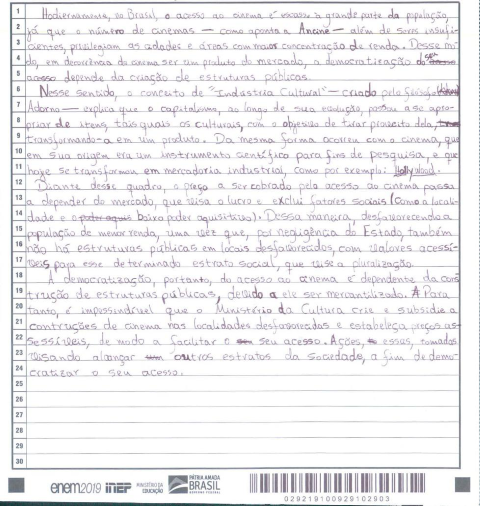 1 Hodiernamente, no Brasil, o acesso ao cinema é escasso à grande parte da população,
2 já que o número de cinemas — como aponta a Ancine — além de serem insufi-
3 cientes, privilegiam as cidades e áreas com maior concentração de renda. Desse mo-
4 do, em decorrência do cinema ser um produto do mercado, a democratização do seu
5 acesso depende da criação de estruturas públicas.
6 Nesse sentido, o conceito de "Industria Cultural" — criado pelo filósofo
7 Adorno — explica que o capitalismo, ao longo de sua evolução, passou a se apro-
8 priar de itens, tais quais os culturais, com o objetivo de tirar proveito dela,
9 transformando-a em um produto. Da mesma forma ocorreu com o cinema, que
10 em sua origem era um instrumento científico para fins de pesquisa, e que
11 hoje se transformou em mercadoria industrial, como por exemplo: Hollywood.
12 Diante desse quadro, o preço a ser cobrado pelo acesso ao cinema passa
13 a depender do mercado, que visa o lucro e exclui fatores sociais (como a locali-
14 dade e o baixo poder aquisitivo). Dessa maneira, desfavorecendo a
15 população de menor renda, uma vez que, por negligência do Estado, também
16 não há estruturas públicas em locais desfavorecidos, com valores acessí-
17 veis para esse determinado estrato social, que vise a pluralização.
18 A democratização, portanto, do acesso ao cinema é dependente da cons-
19 trução de estruturas públicas, devido a ele ser mercantilizado. Para
20 tanto, é impossindivel que o Ministério da Cultura crie e subsidie a
21 contruções de cinema nas localidades desfavorecidos e estabeleça preços as-
22 sessíveis, de modo a facilitar o seu acesso. Ações, essas, tomadas
23 visando alcançar outros estratos da sociedade, a fim de demo-
24 cratizar o seu acesso.
25
26
27
28
29
30
enem2019 inep MINISTÉRIO DA EDUCAÇÃO PÁTRIA AMADA BRASIL GOVERNO FEDERAL
029219100929102903